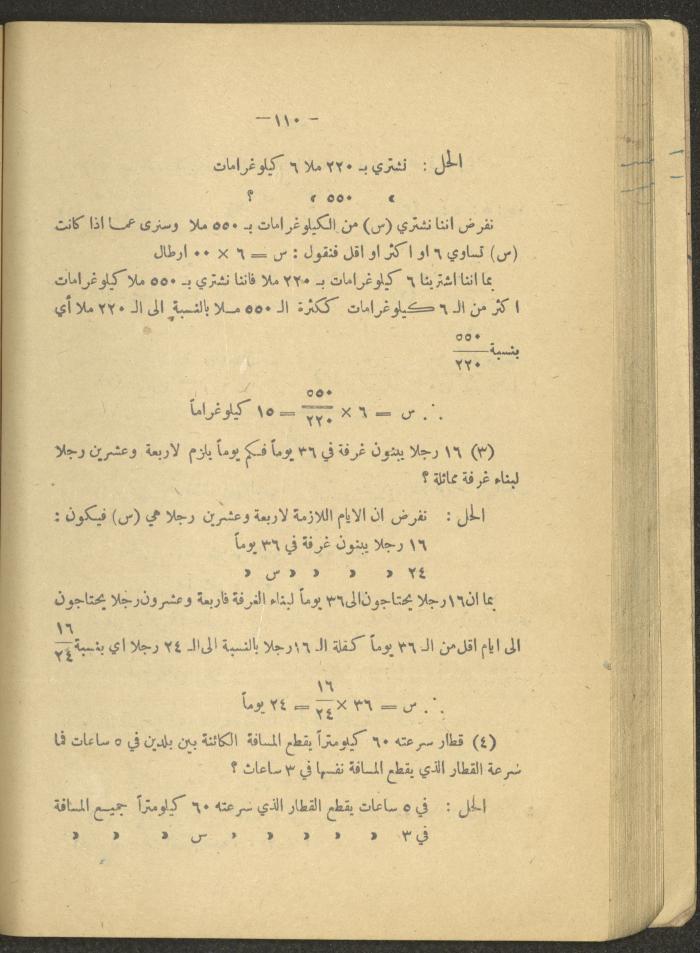 - ١١٠ -
الحل : نشتري بـ ٢٢٠ ملا ٦ كيلوغرامات
» ٥٥٠ » ؟
نفرض اننا نشتري (س) من الكيلوغرامات بـ ٥٥٠ ملا وسنرى عما اذا كانت
(س) تساوي ٦ او اكثر او اقل فنقول : س = ٦ × ٠٠ ارطال
بما اننا اشترينا ٦ كيلوغرامات بـ ٢٢٠ ملا فاننا نشتري بـ ٥٥٠ ملا كيلوغرامات
اكثر من الـ ٦ كيلوغرامات ككثرة الـ ٥٥٠ ملا بالنسبة الى الـ ٢٢٠ ملا أي
بنسبة ٥٥٠/٢٢٠
∴ س = ٦ × ٥٥٠/٢٢٠ = ١٥ كيلوغراماً
(٣) ١٦ رجلا يبنون غرفة في ٣٦ يوماً فكم يوماً يلزم لاربعة وعشرين رجلا
لبناء غرفة مماثلة ؟
الحل : نفرض ان الايام اللازمة لاربعة وعشرين رجلا هي (س) فيكون :
١٦ رجلا يبنون غرفة في ٣٦ يوماً
٢٤ » » » » س »
بما ان ١٦ رجلا يحتاجون الى ٣٦ يوماً لبناء الغرفة فاربعة وعشرون رجلا يحتاجون
الى ايام اقل من الـ ٣٦ يوماً كقلة الـ ١٦ رجلا بالنسبة الى الـ ٢٤ رجلا اي بنسبة ١٦/٢٤
∴ س = ٣٦ × ١٦/٢٤ = ٢٤ يوماً
(٤) قطار سرعته ٦٠ كيلومتراً يقطع المسافة الكائنة بين بلدين في ٥ ساعات فما
سرعة القطار الذي يقطع المسافة نفسها في ٣ ساعات ؟
الحل : في ٥ ساعات يقطع القطار الذي سرعته ٦٠ كيلومتراً جميع المسافة
في ٣ » » » » » س » » »